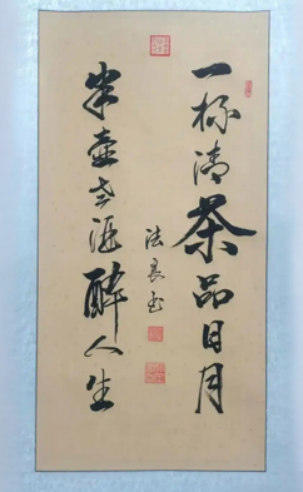 一杯清茶品日月
半壶老酒醉人生
法良书